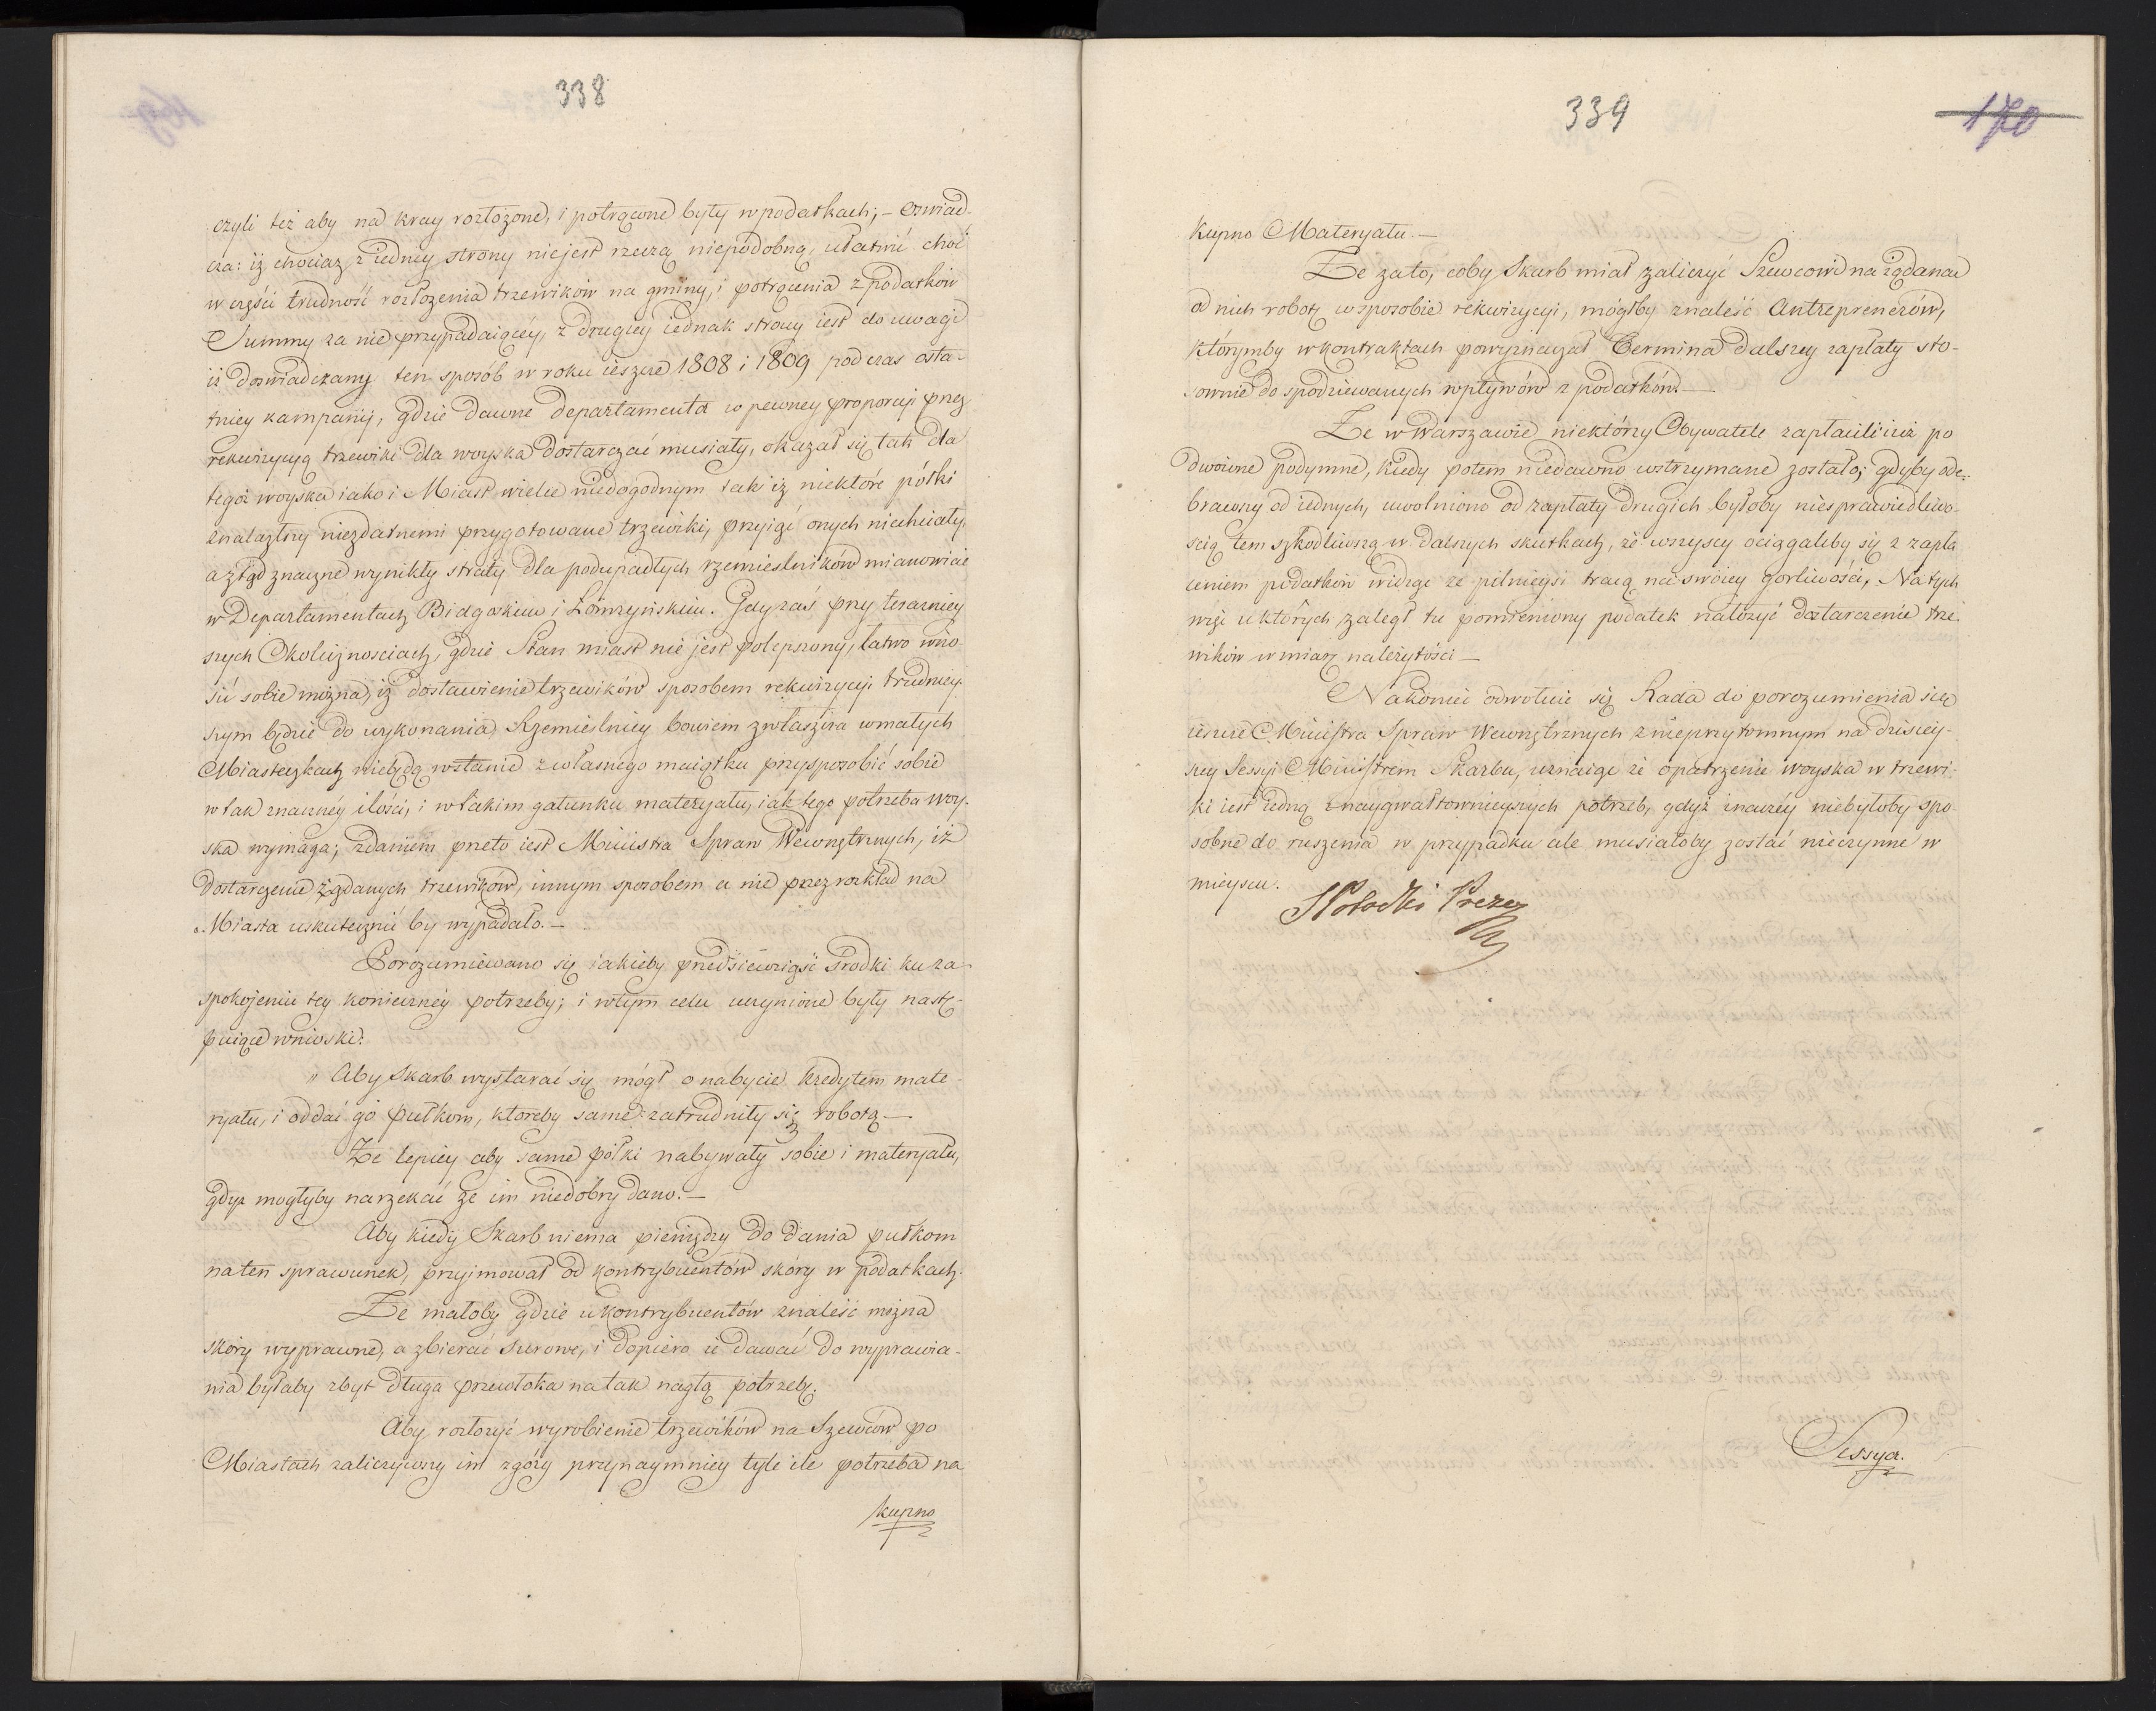 338
czyli też aby na kray rozłożone, i potrącone były w podatkach; – oswiad-
cza: iż chociaz z iedney strony niejest rzeczą niepodobną, ułatwić choć
w części trudność rozłożenia trzewików na gminy, i potrącenia z podatków
Summy za nie przypadaiącéy, z drugiey iednak strony iest do uwagi
iż doswiadczany ten sposób w roku ieszcze 1808 i 1809 podczas osta-
tniey kampanij, gdzie dawne Departamenta w pewney proporcyi przez
rekwizycyą trzewiki dla woyska dostarczać musiały, okazał się tak dla
tegoż woyska iako i Miast wielce niedogodnym tak iż niektóre półki
znalazłszy niezdatnemi przygotowane trzewiki, przyiąć onych niechciały,
a ztąd znaczne wynikły straty dla podupadłych rzemieslników mianowicie
w Departamentach Bidgoskim i Łomżyńskim. Gdy zaś przy teraźniey
szych Okolicznosciach, gdzie Stan miast nie jest polepszony, łatwo wno
sić sobie można, iż dostawienie trzewików sposobem rekwizycyi trudniey-
szym będzie do wykonania, Rzemieślnicy bowiem zwłaszcza w małych
Miasteczkach niebędą w stanie z własnego maiątku przysposobić sobie
w tak znacznéy ilości, i w takim gatunku materyału, iak tego potrzeba woy-
ska wymaga; zdaniem przeto iest Ministra Spraw Wewnętrznych, iż
dostarczenie żądanych trzewików, innym sposobem a nie przez rozkład na
Miasta uskutecznić by wypadało. –
Porozumiewano się iakieby przedsiewziąść srodki ku za-
spokojeniu tey konieczney potrzeby; i w tym celu uczynione były nastę-
puiące wnioski:
" Aby Skarb wystarać się mógł o nabycie kredytem mate-
ryału, i oddać go pułkom, ktoreby same zatrudniły się robotą –
Że lepiey aby same półki nabywały sobie i materyału,
gdyż mogłyby narzekać że im niedobry dano. –
Aby kiedy Skarb niema pieniędzy do dania pułkom
na ten sprawunek, przyimował od kontrybuentów skóry w podatkach.
Że małoby gdzie u kontrybuentów znaleść można
skóry wyprawne, a zbierać surowe, i dopiero ie dawać do wyprawia-
nia byłaby zbyt długa przewłoka na tak nagłą potrzebę.
Aby rozłożyć wyrobienie trzewików na Szewców po
Miastach zaliczywszy im z góry przynaymniey tyle ile potrzeba na
kupno
339
170
kupno Materyału. –
Że zato, coby Skarb miał zaliczyć Szewcowi na żądana
od nich robotę w sposobie rekwizycyi, mógłby znaleść Antreprenerów,
którymby w kontraktach powyznaczał Termina dalszey zapłaty sto-
sownie do spodziewanych wpływów z podatków. –
Że w Warszawie niektórzy Obywatele zapłacili iuż po
dwoine podymne, kiedy potem niedawno wstrzymane zostało; gdyby ode-
brawszy od iednych, uwolniono od zapłaty drugich byłoby niesprawiedliwo-
scią tem szkodliwszą w dalszych skutkach, że wszyscy ociągaliby się z zapła
ceniem podatków widząc że pilnieysi tracą na swoiey gorliwości, Na tych
więc u których zaległ tu pomieniony podatek nałożyć dostarczenie trze-
wików w miarę należytości –
Nakoniec odwołuie się Rada do porozumienia się
ieszcze Ministra Spraw Wewnętrznych z nieprzytomnym na dzisiey-
szey Sessyi Ministrem Skarbu, uznaiąc że opatrzenie woyska w trzewi-
ki iest iedną z naygwałtownieyszych potrzeb, gdyż inaczéy niebyłoby spo-
sobne do ruszenia w przypadku ale musiałoby zostać nieczynne w
mieyscu.
S Potocki Prezez
Sessya.